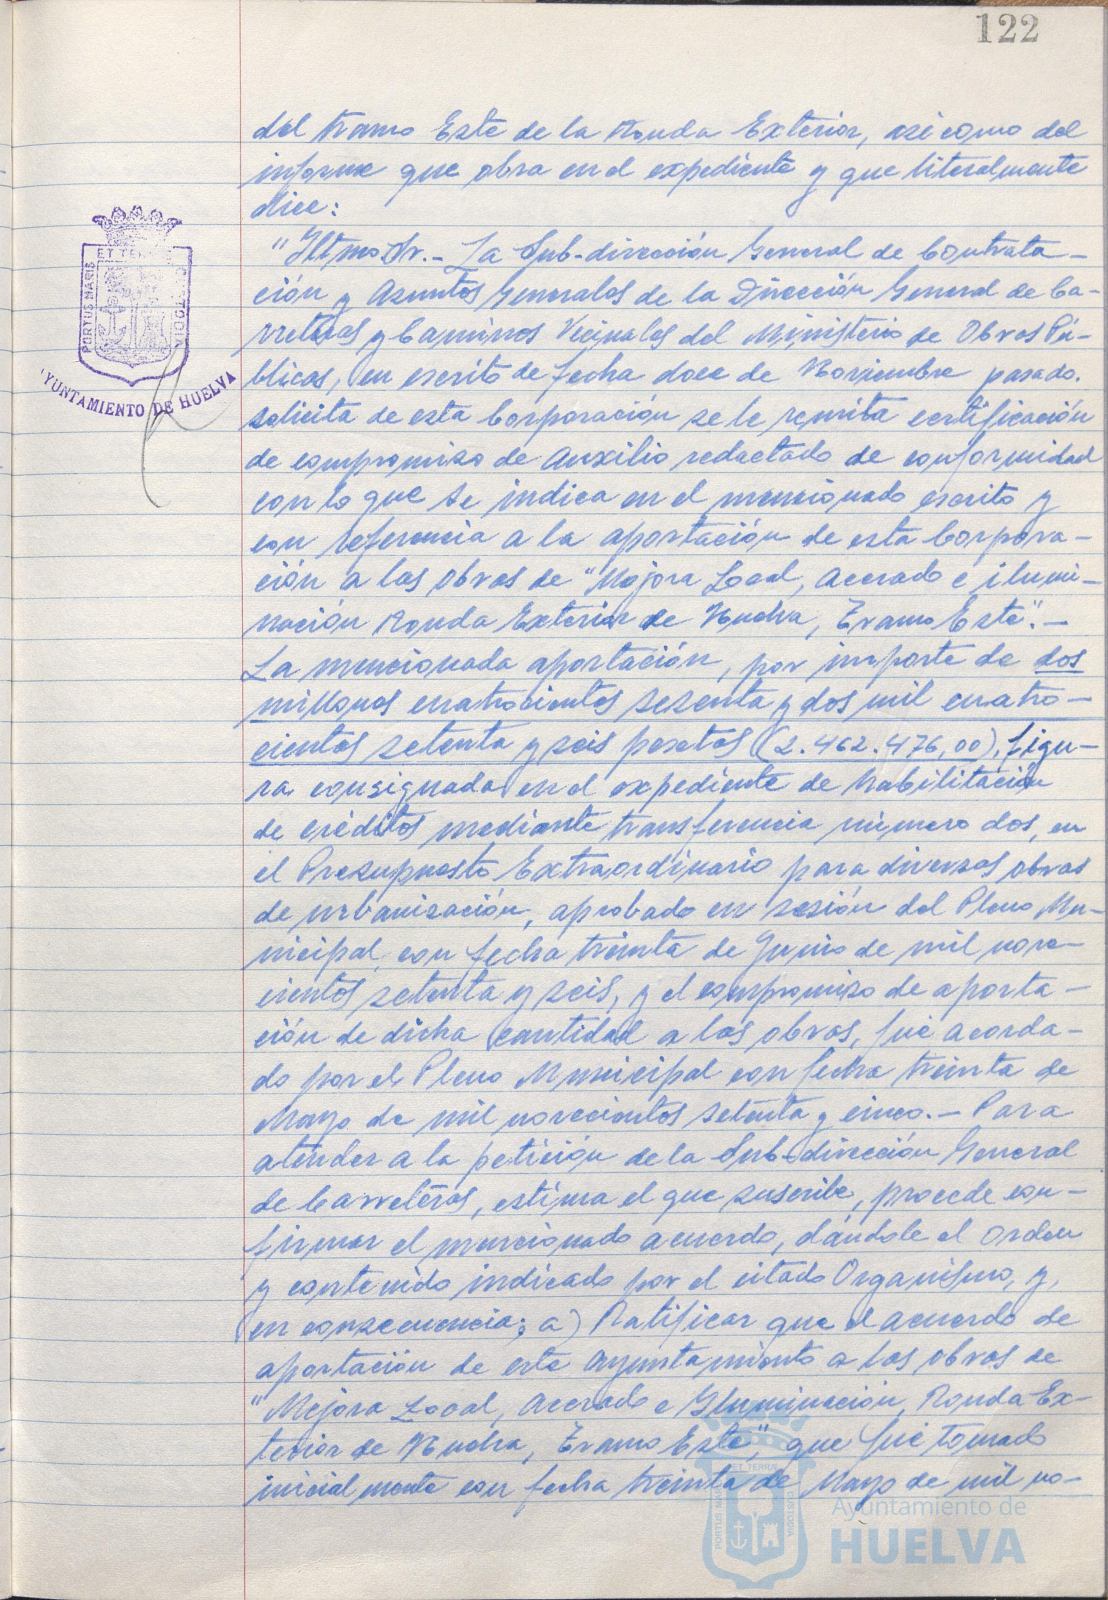 122
del tramo Este de la Ronda Exterior, así como del
informe que obra en el expediente y que literalmente
dice:
"Iltmo Sr.- La Sub-dirección General de Contrata-
ción y Asuntos Generales de la Dirección General de Ca-
rreteras y Caminos Vecinales del Ministerio de Obras Pú-
blicas, en escrito de fecha doce de Noviembre pasado.
solicita de esta Corporación se le remita certificación
de compromiso de auxilio redactado de conformidad
con lo que se indica en el mencionado escrito y
con referencia a la aportación de esta Corpora-
ción a las obras de "Mejora Local, Acerado e ilumi-
nación Ronda Exterior de Huelva, Tramo Este".-
La mencionada aportación, por importe de dos
millones cuatrocientos sesenta y dos mil cuatro-
cientas setenta y seis pesetas (2.462.476,00), figu-
ra consignada en el expediente de habilitación
de créditos mediante transferencia número dos, en
el Presupuesto Extraordinario para diversas obras
de urbanización, aprobado en sesión del Pleno Mu-
nicipal, con fecha treinta de Junio de mil nove-
cientos setenta y seis, y el compromiso de aporta-
ción de dicha cantidad a las obras, fue acorda-
do por el Pleno Municipal con fecha treinta de
Mayo de mil novecientos setenta y cinco.- Para
atender a la petición de la Sub-dirección General
de Carreteras, estima el que suscribe, procede con-
firmar el mencionado acuerdo, dándole el orden
y contenido indicado por el citado Organismo, y,
en consecuencia; a) Ratificar que el acuerdo de
aportación de este Ayuntamiento a las obras de
"Mejora Local, Acerado e Iluminación, Ronda Ex-
terior de Huelva, Tramo Este", que fue tomado
inicialmente con fecha treinta de Mayo de mil no-
PORTUS MARIS ET TERRAE CUSTODIA
AYUNTAMIENTO DE HUELVA
PORTUS MARIS ET TERRAE CUSTODIA
Ayuntamiento de
HUELVA